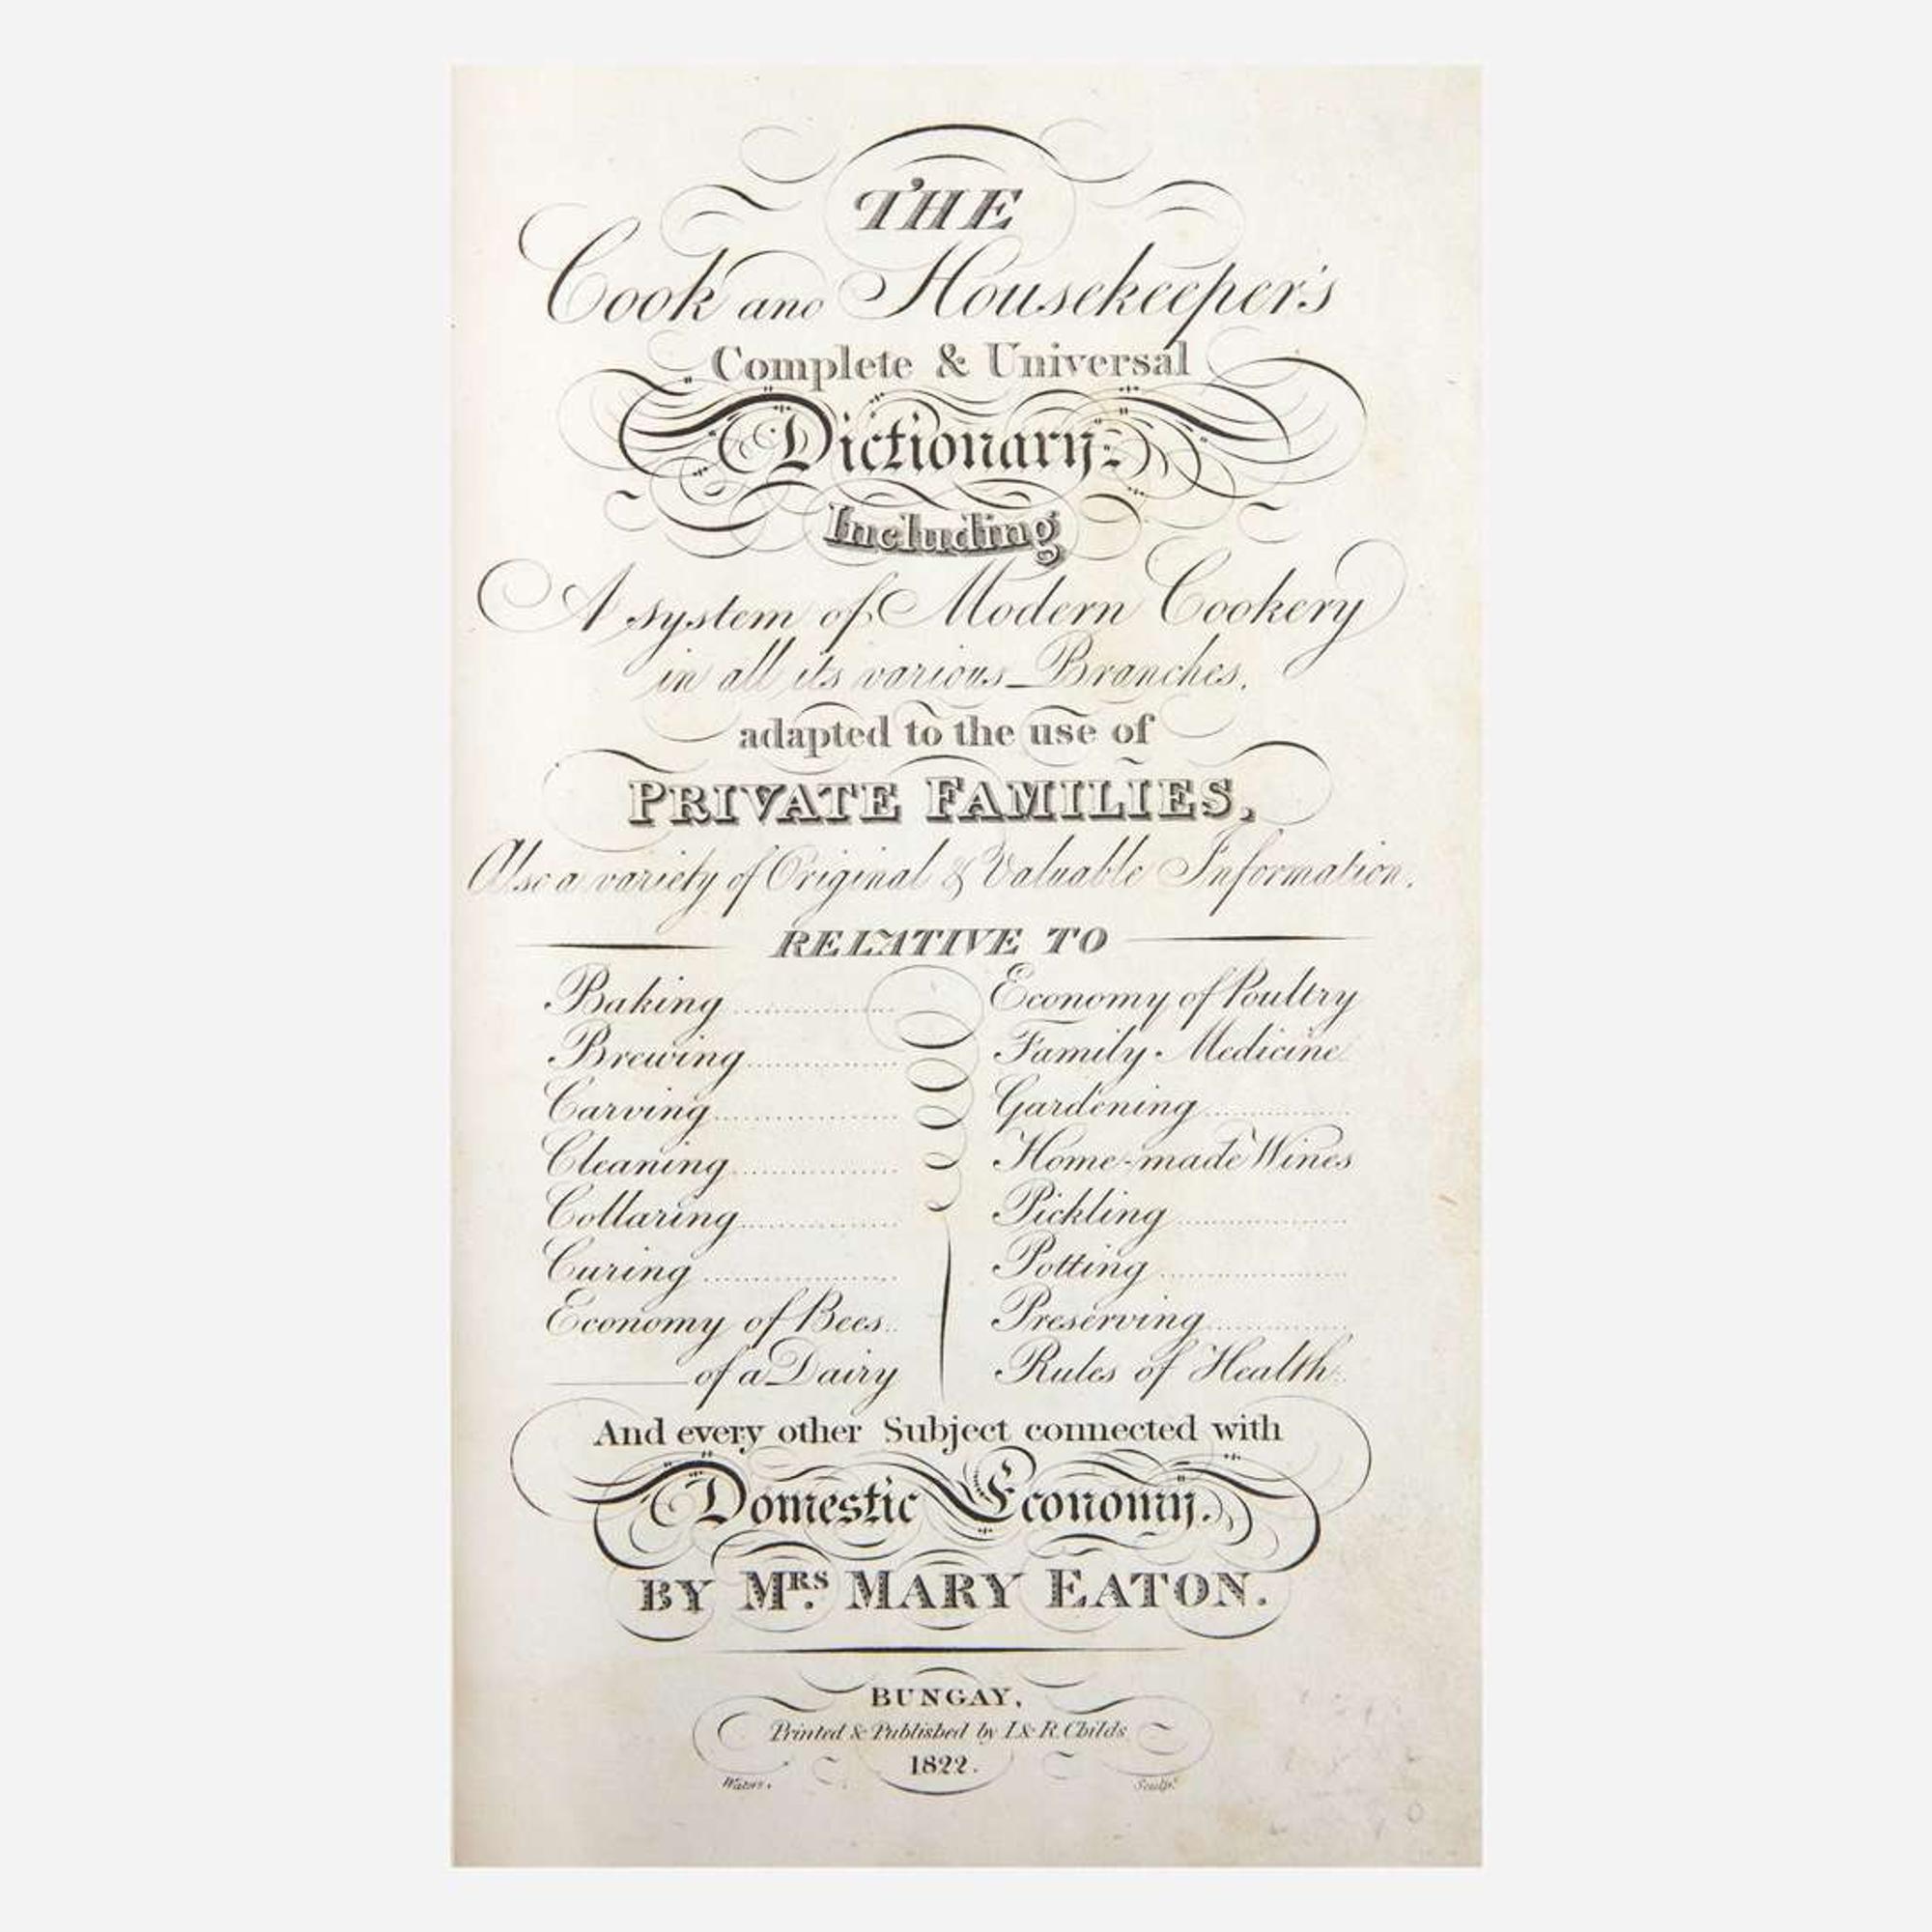 THE
Cook and Housekeeper's
Complete & Universal
Dictionary:
Including
A system of Modern Cookery
in all its various Branches,
adapted to the use of
PRIVATE FAMILIES,
Also a variety of Original & Valuable Information.
RELATIVE TO
Baking
Brewing
Carving
Cleaning
Collaring
Curing
Economy of Bees
of a Dairy
Economy of Poultry
Family Medicine
Gardening
Home-made Wines
Pickling
Potting
Preserving
Rules of Health
And every other Subject connected with
Domestic Economy.
BY MRS. MARY EATON.
BUNGAY,
Printed & Published by I & R. Childs
1822.
Waters. Sculpt.